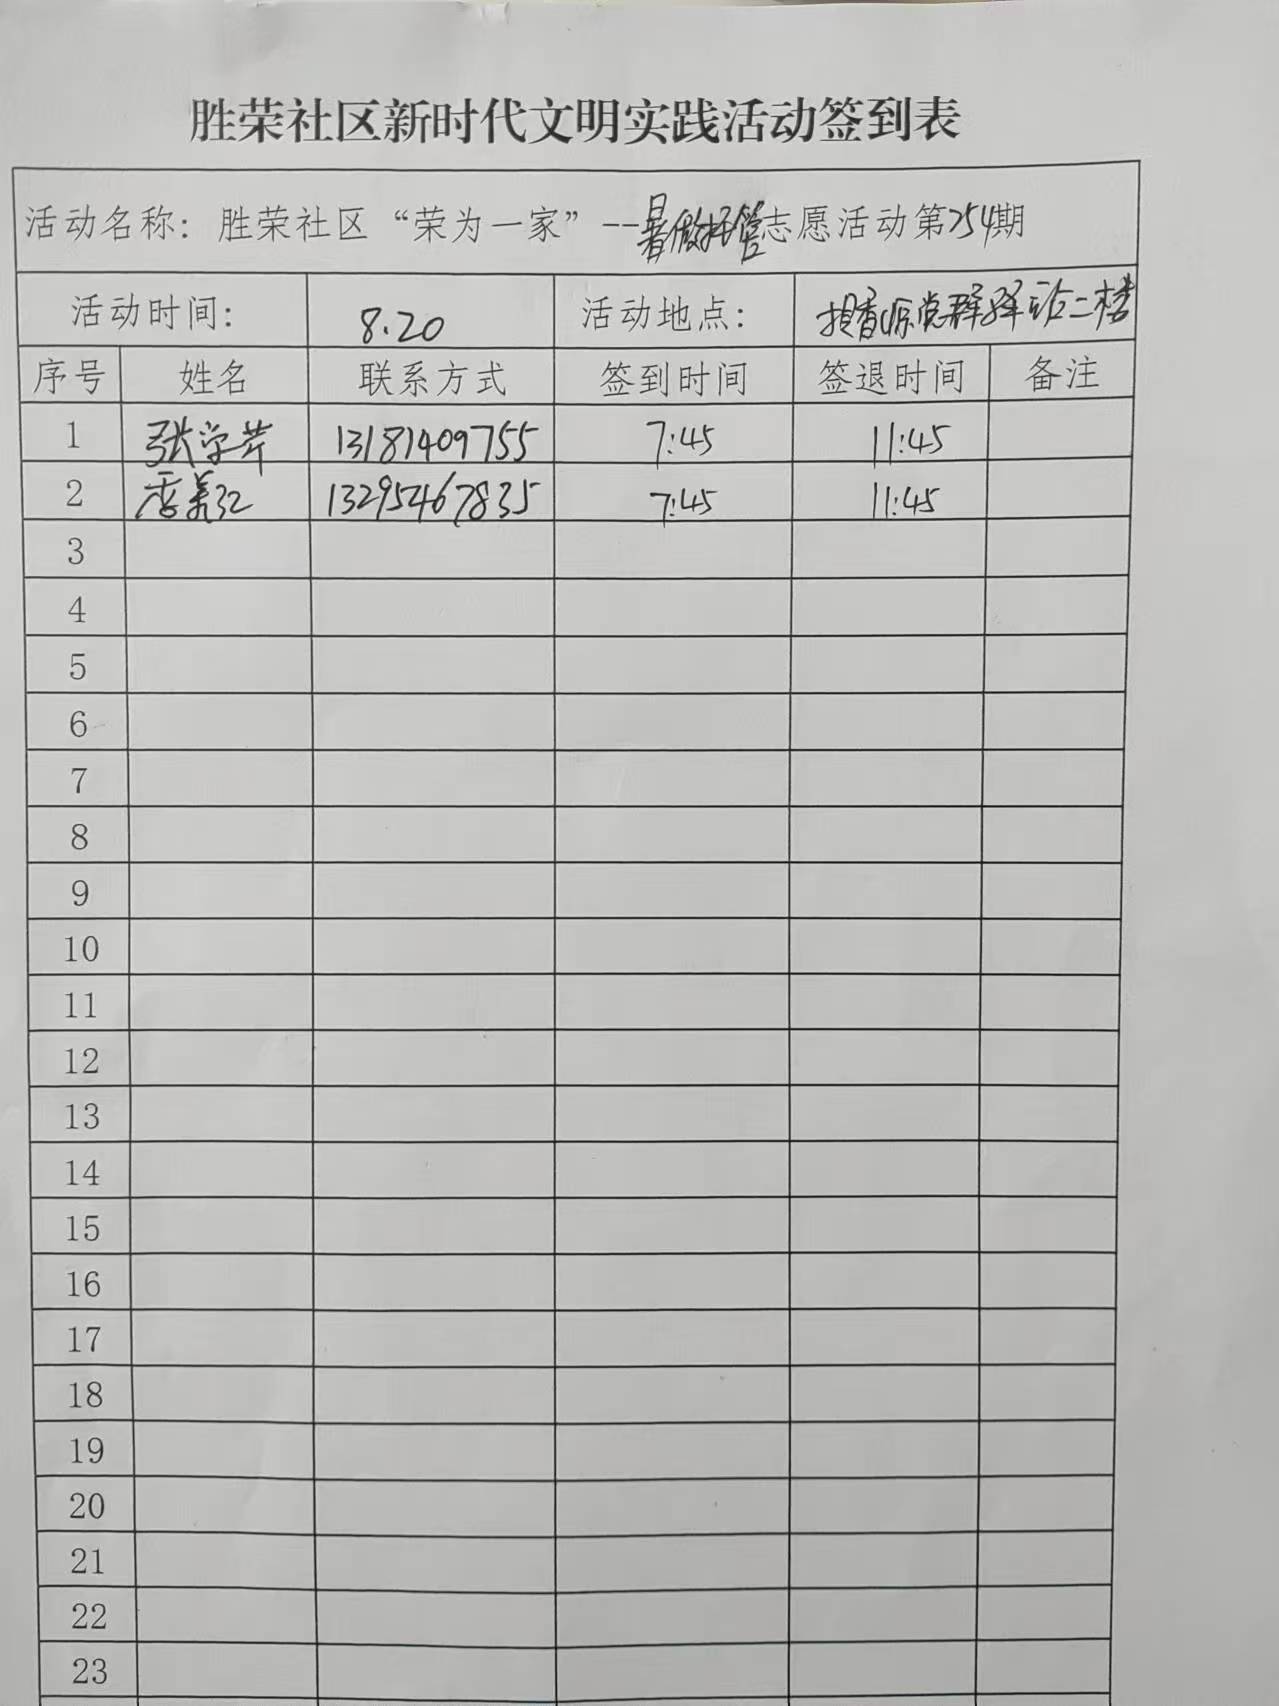 胜荣社区新时代文明实践活动签到表
活动名称：胜荣社区“荣为一家”--暑假托管志愿活动第254期
活动时间： 8.20 活动地点： 香源党群驿站二楼
序号 姓名 联系方式 签到时间 签退时间 备注
1 张学芹 13181409755 7:45 11:45
2 季美红 13295467835 7:45 11:45
3
4
5
6
7
8
9
10
11
12
13
14
15
16
17
18
19
20
21
22
23